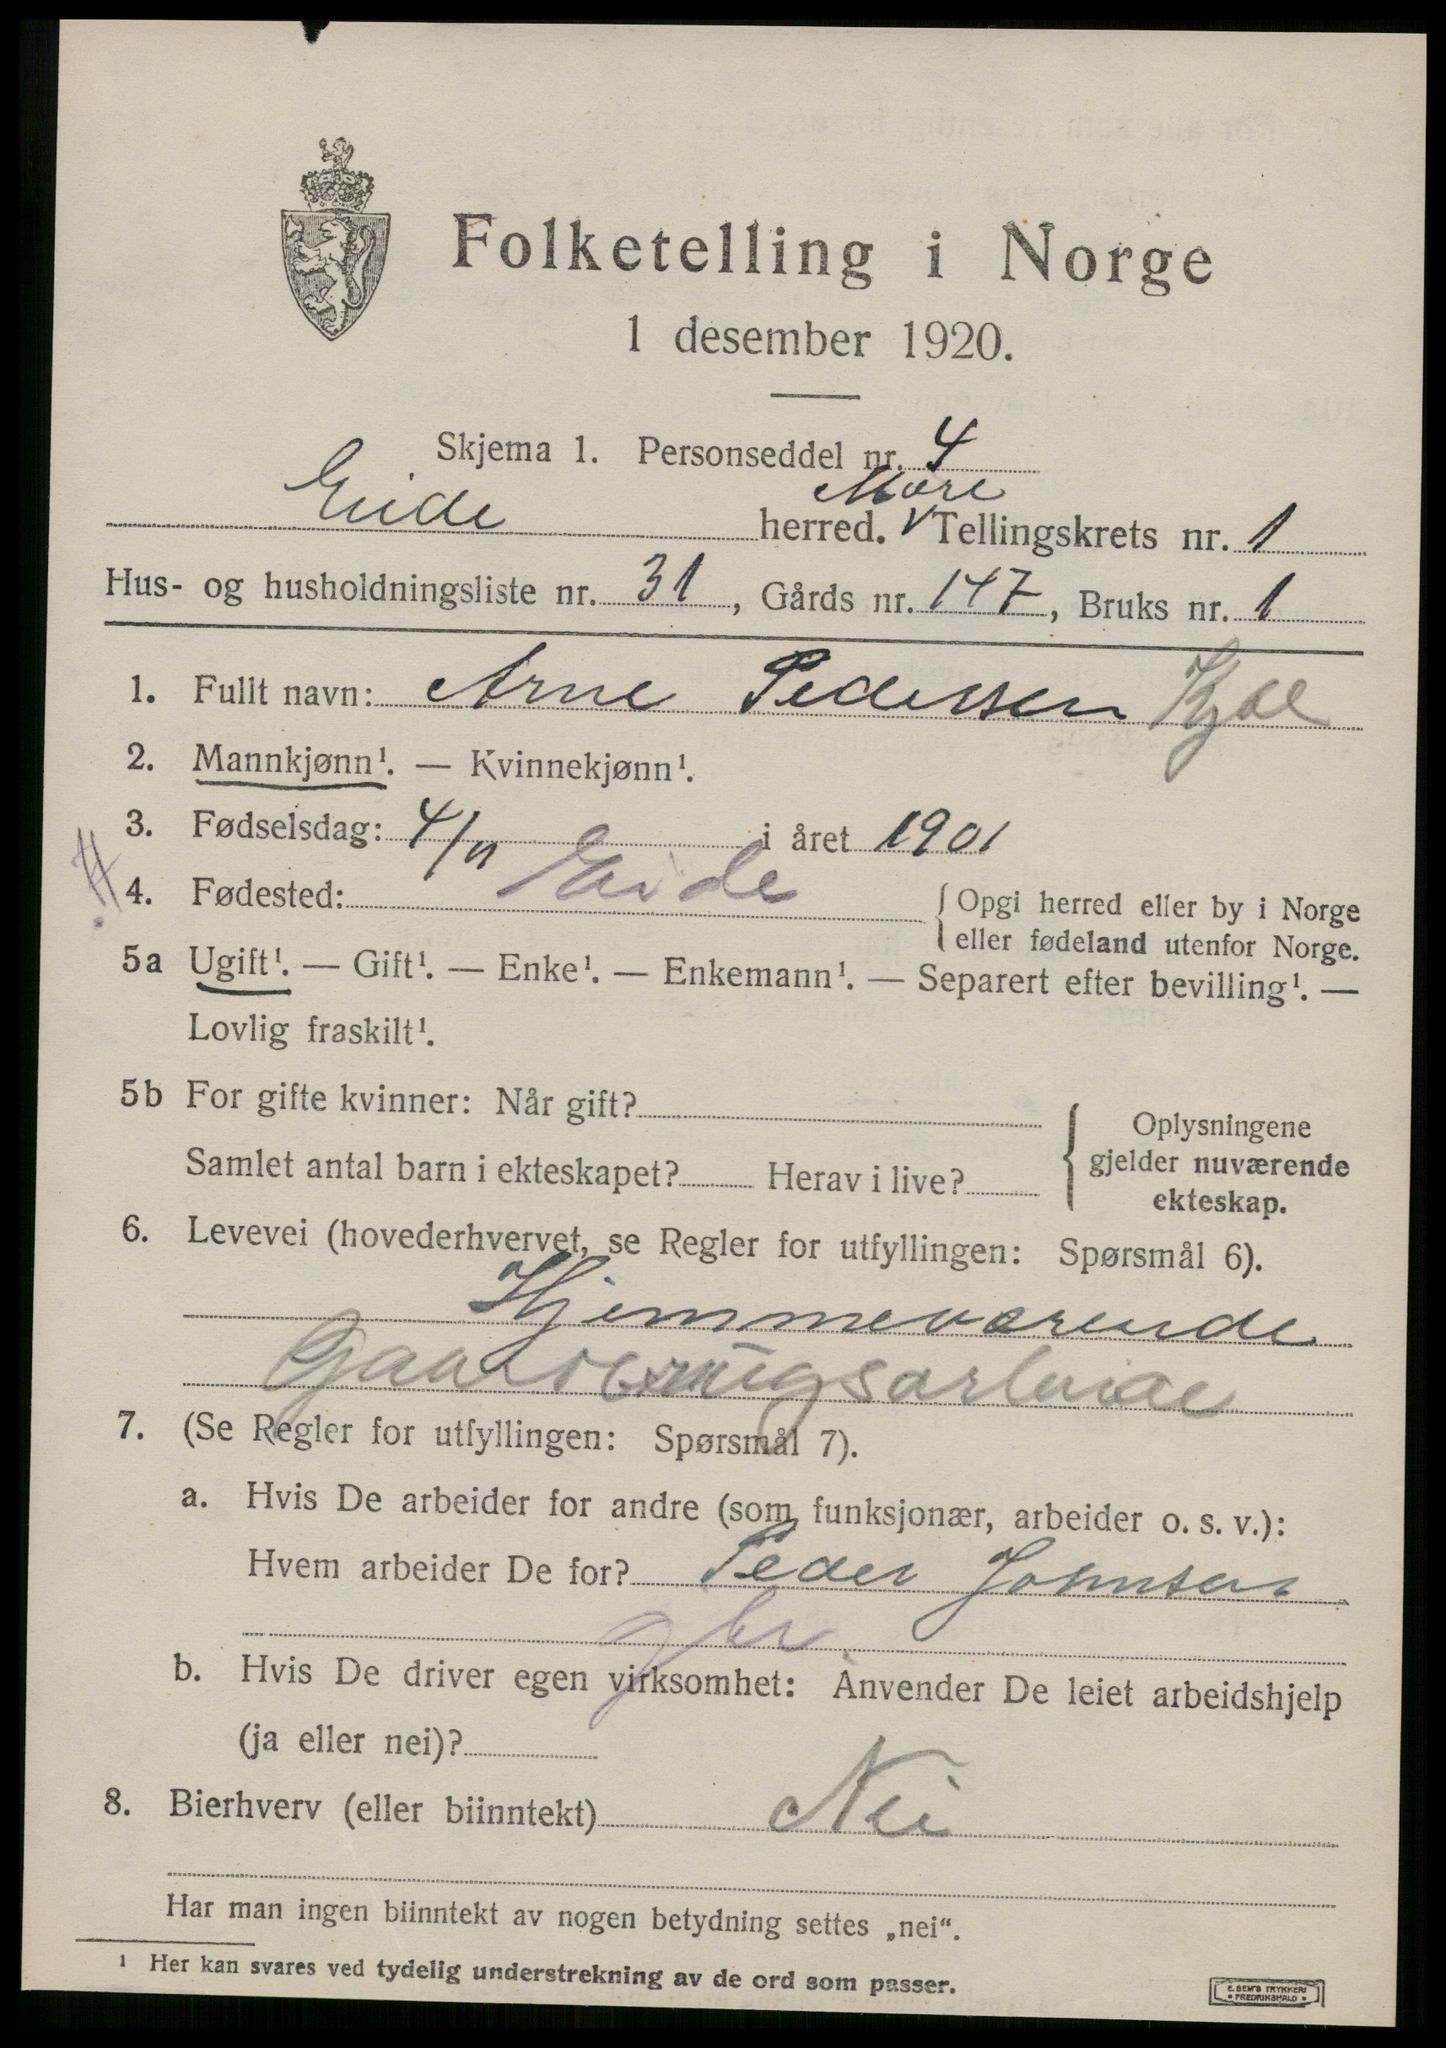 Folketelling i Norge
1 desember 1920.
Skjema 1. Personseddel nr. 4
Møre
Eide herred. V Tellingskrets nr. 1
Hus- og husholdningsliste nr. 31, Gårds nr. 147, Bruks nr. 1
1. Fullt navn: Arne Pedersen
2. Mannkjønn¹. — Kvinnekjønn¹.
3. Fødselsdag: 4/11 i året 1901
4. Fødested: Eide { Opgi herred eller by i Norge
eller fødeland utenfor Norge.
5a Ugift¹. — Gift¹. — Enke¹. — Enkemann¹. — Separert efter bevilling¹. —
Lovlig fraskilt¹.
5b For gifte kvinner: Når gift?
Samlet antal barn i ekteskapet? Herav i live?
{ Oplysningene
gjelder nuværende
ekteskap.
6. Levevei (hovederhvervet, se Regler for utfyllingen: Spørsmål 6).
Hjemmeværende
7. (Se Regler for utfyllingen: Spørsmål 7).
a. Hvis De arbeider for andre (som funksjonær, arbeider o. s. v.):
Hvem arbeider De for? Peder Johnsen
gbr
b. Hvis De driver egen virksomhet: Anvender De leiet arbeidshjelp
(ja eller nei)?
8. Bierhverv (eller biinntekt) Nei
Har man ingen biinntekt av nogen betydning settes „nei“.
¹ Her kan svares ved tydelig understrekning av de ord som passer.
E. SEM'S TRYKKERI
• FREDRIKSHALD •